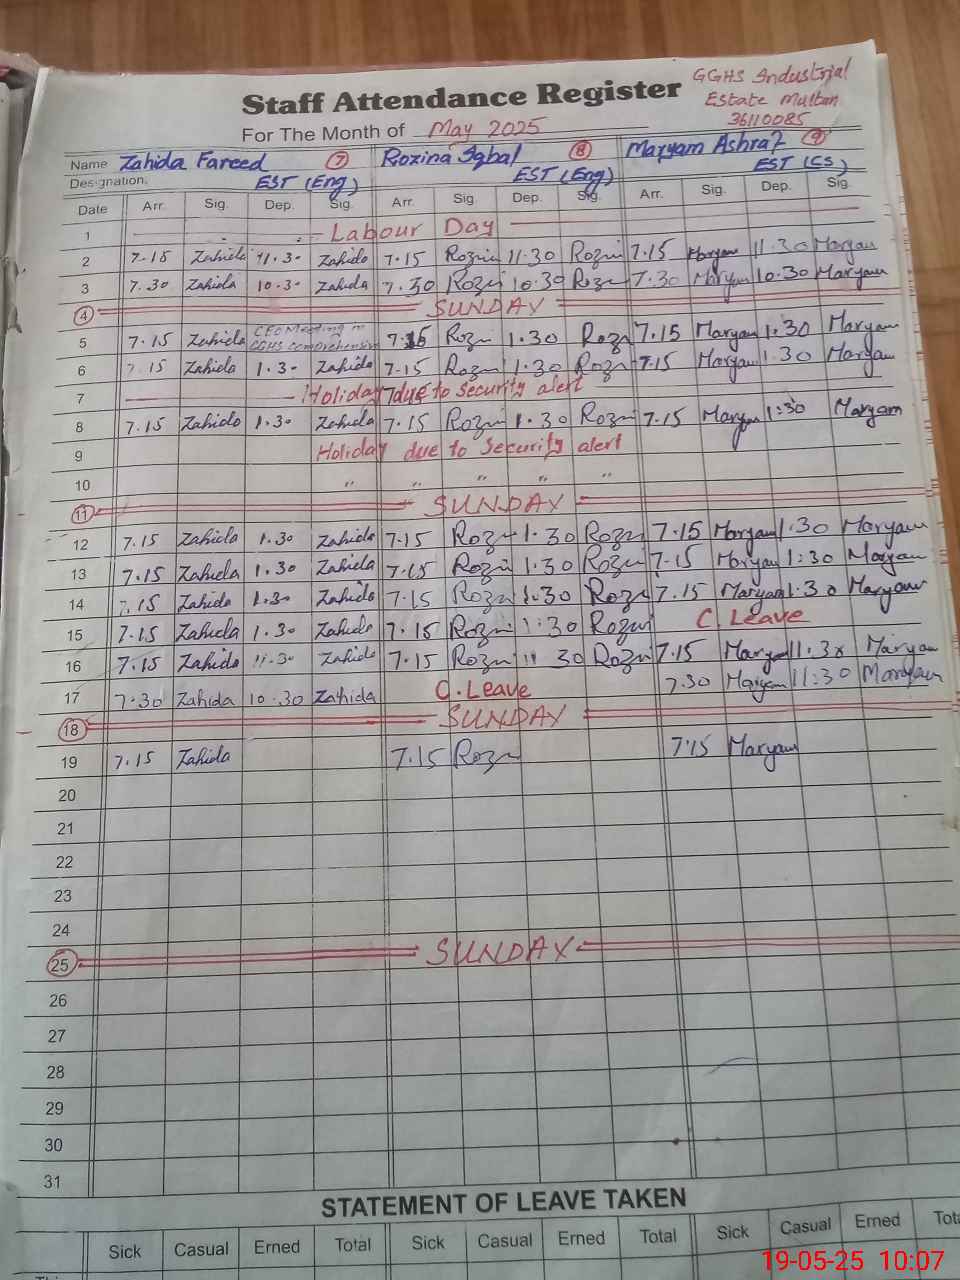 GGHS Industrial
Staff Attendance Register Estate Multan
For The Month of May 2025 36110085
Name Zahida Fareed 7 Rozina Iqbal 8 Maryam Ashraf 9
Designation. EST (Eng) EST (Eng) EST (CS)
Date Arr. Sig. Dep. Sig. Arr. Sig. Dep. Sig. Arr. Sig. Dep. Sig.
1 Labour Day
2 7.15 Zahida 11.30 Zahida 7.15 Rozin 11.30 Rozin 7.15 Maryam 11.30 Maryam
3 7.30 Zahida 10.30 Zahida 7.30 Rozin 10.30 Rozn 7.30 Maryam 10.30 Maryam
4 SUNDAY
5 7.15 Zahida CEO Meeting in GGHS comprehensive 7.15 Rozn 1.30 Rozn 7.15 Maryam 1.30 Maryam
6 7.15 Zahida 1.30 Zahida 7.15 Rozn 1.30 Rozn 7.15 Maryam 1.30 Maryam
7 Holiday due to Security alert
8 7.15 Zahida 1.30 Zahida 7.15 Rozin 1.30 Rozin 7.15 Maryam 1:30 Maryam
9 Holiday due to Security alert
10 " " " " "
11 SUNDAY
12 7.15 Zahida 1.30 Zahida 7.15 Rozn 1.30 Rozn 7.15 Maryam 1.30 Maryam
13 7.15 Zahida 1.30 Zahida 7.15 Rozin 1.30 Rozin 7.15 Maryam 1:30 Maryam
14 7.15 Zahida 1.30 Zahida 7.15 Rozn 1.30 Rozn 7.15 Maryam 1.30 Maryam
15 7.15 Zahida 1.30 Zahida 7.15 Rozin 1:30 Rozin C. Leave
16 7.15 Zahida 11.30 Zahida 7.15 Rozn 11 30 Rozn 7.15 Maryam 11.30 Maryam
17 7.30 Zahida 10.30 Zahida C. Leave 7.30 Maryam 11:30 Maryam
18 SUNDAY
19 7.15 Zahida 7.15 Rozn 7.15 Maryam
20
21
22
23
24
25 SUNDAY
26
27
28
29
30
31
STATEMENT OF LEAVE TAKEN
Sick Casual Erned Total Sick Casual Erned Total Sick Casual Erned
19-05-25 10:07